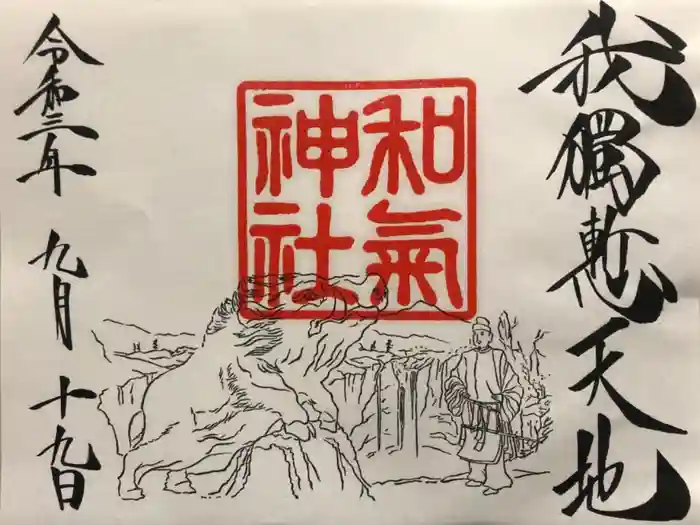 我獨慙天地
和氣
神社
令和三年 九月 十九日